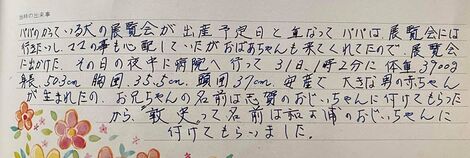 当時の出来事
パパのかっている犬の展覧会が出産予定日と重なってパパは、展覧会には
行きたいし、ママの事も心配していたがおばあちゃんも来てくれたので、展覧会
に出かけた。その日の夜中に病院へ行って31日、1時2分に体重3700g
身長、50.3cm、胸囲、35.5cm、頭囲37cm、安産で大きな男の赤ちゃん
が生まれたの。お兄ちゃんの名前は志賀のおじいちゃんに付けてもらった
から、敦史って名前は和お浦のおじいちゃんに
付けてもらいました。